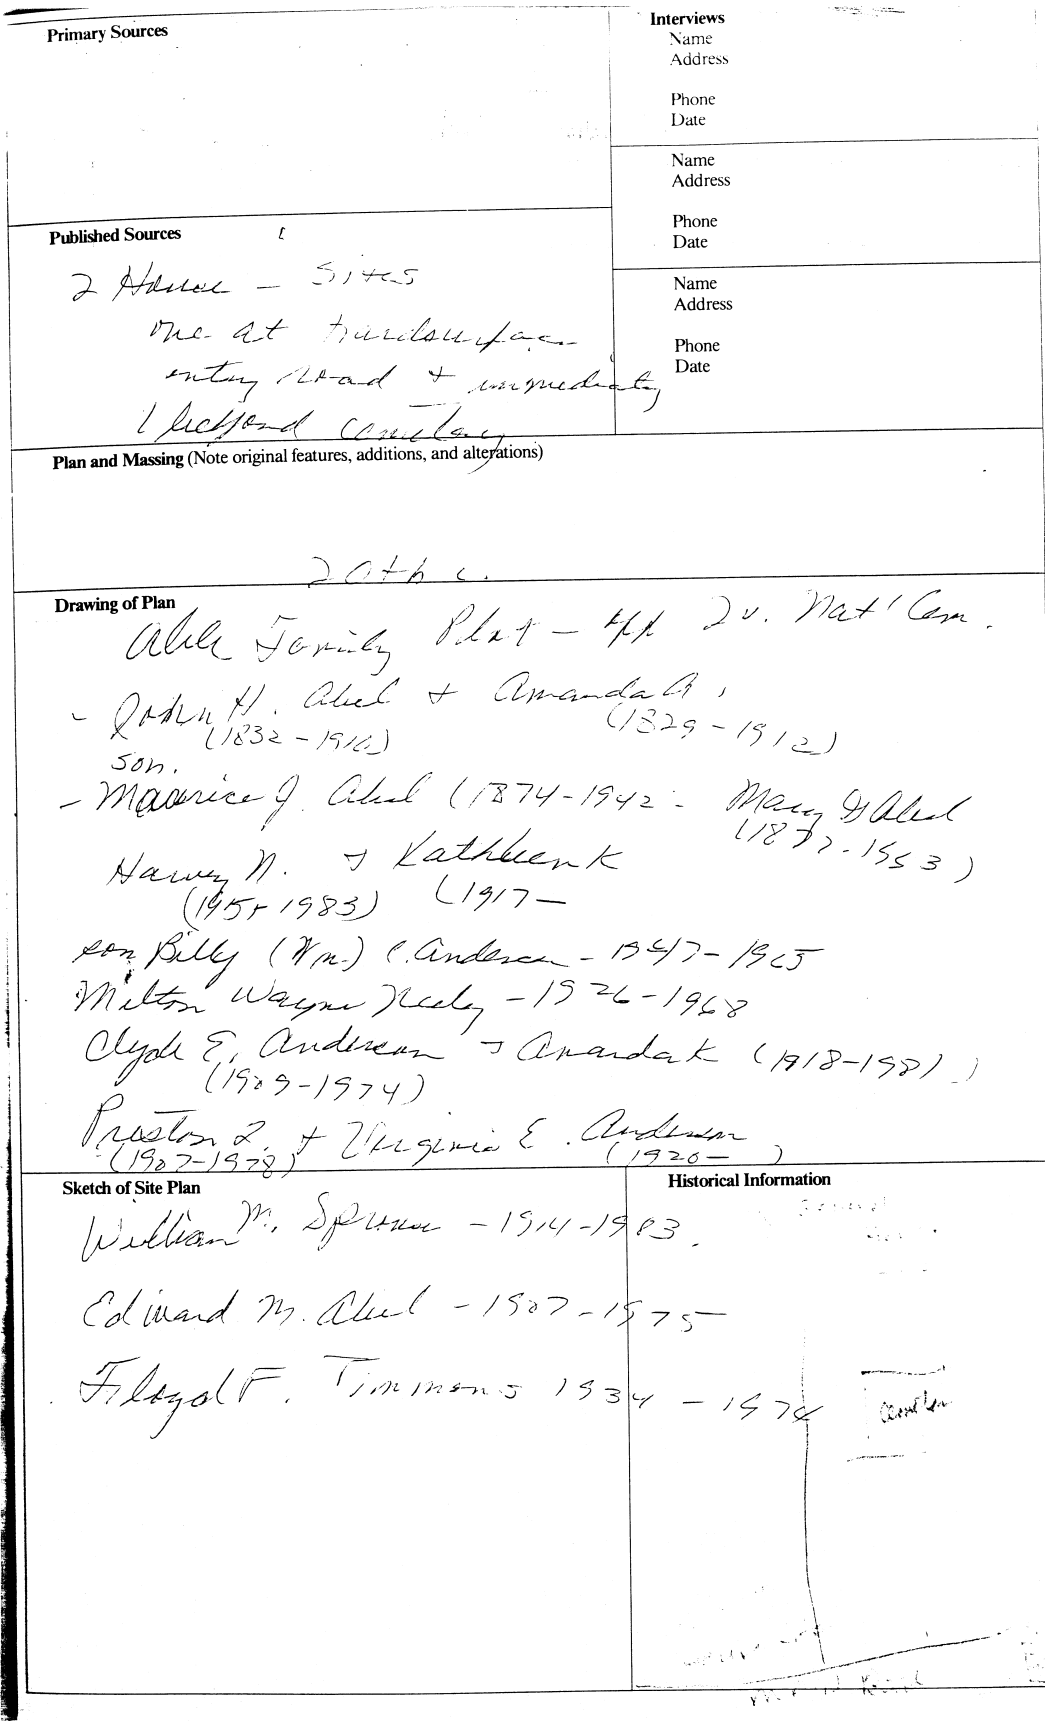 Primary Sources
Interviews
Name
Address
Phone
Date
Name
Address
Phone
Date
Name
Address
Phone
Date
Published Sources
2 House - Sites
one at hardsurface
entry road & immediately
cemetery
Plan and Massing (Note original features, additions, and alterations)
20th c.
Drawing of Plan
Family Plot - Nat'l Cem.
- John H. Abel + Amanda A.
(1832-1916) (1829-1912)
son.
- Maurice J. Abel (1874-1942 - Mary Abel
Harvey N. & Kathleen K
1983) (1917-
son Billy (Wm.) C. Anderson - 1947-1965
Milton Wayne Neely - 1926-1968
Clyde E. Anderson & Amanda K (1918-1981)
(1909-1974)
Preston L. + Virginia E. Anderson
(1907-1978) (1920- )
Sketch of Site Plan
Historical Information
William M. Sprouse - 1914-1983
Edward M. Abel - 1907-1975
Floyd F. Timmons 1934 - 1974